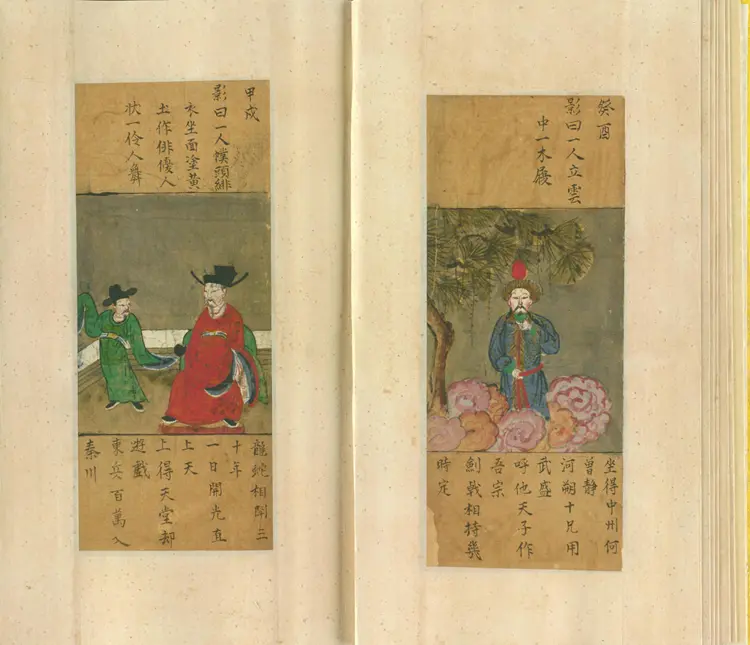 癸酉
影曰一人立雲
中一木履
坐得中州何
曾静
河朔十兄用
武盛
呼他天子作
吾宗
劍戟相持幾
時定
甲戌
影曰一人幞頭緋
衣坐面塗黃
土作俳優人
狀一伶人舞
龍蛇相鬪三
十年
一日開光直
上天
上得天堂却
遊戲
東兵百萬入
秦川